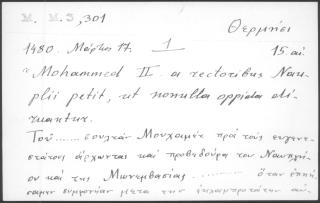 M. M. 3, 301
Θερμησι
1480. Μάρτιος 17. 1 15 αι.
Mohammed II. a rectoribus Nau-
plii petit, ut nonulla oppida eli-
Τοῦ ........ σουλτάν Μουχαμέτ πρὸ τοὺς εὐγενε-
στάτους ἄρχοντας καὶ προβεδούρα τοῦ Ναυπλί-
ου καὶ τῆς Μονεμβασίας ........ ὅταν ἐποιή-
σαμεν συμφωνίαν μετα την